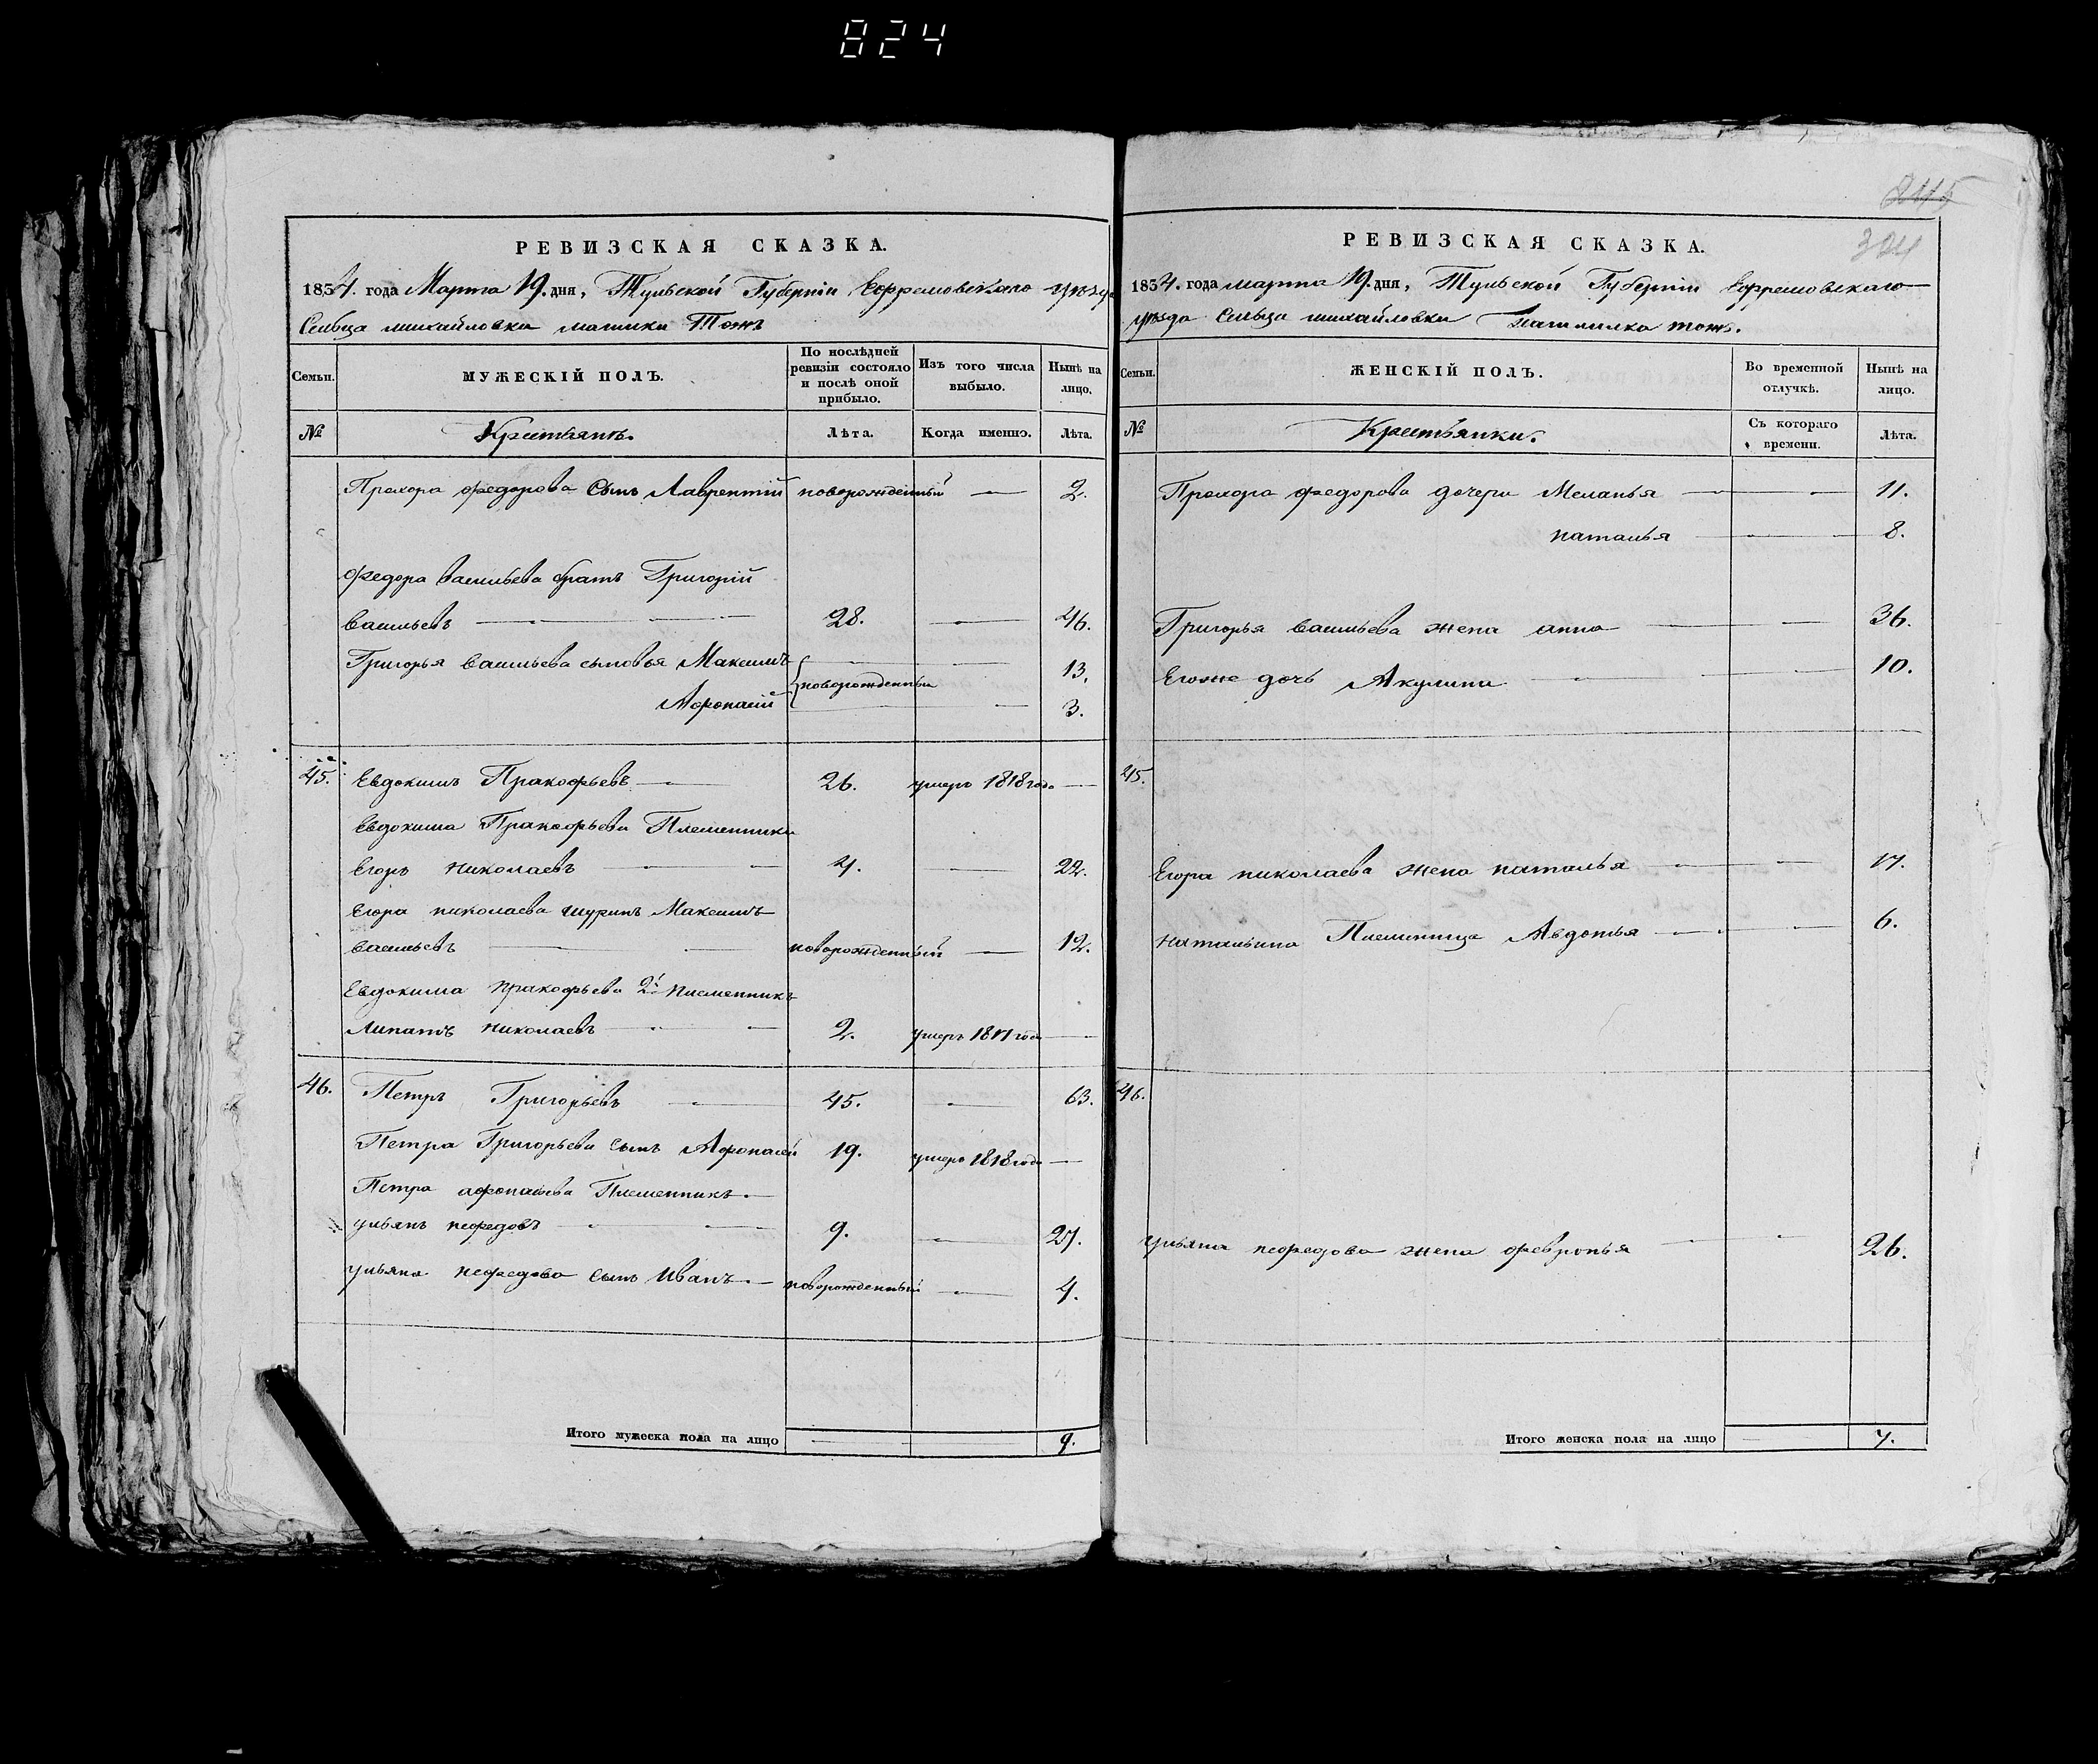 824
РЕВИЗСКАЯ СКАЗКА.
1834. года Марта 19. дня, Тульской Губерніи Ефремовскаго уѣзда
Сельца михайловки тожъ
Семьи.
МУЖЕСКІЙ ПОЛЪ.
По послѣдней ревизіи состояло и послѣ оной прибыло.
Изъ того числа выбыло.
Нынѣ на лицо.
№
Крестьянъ.
Лѣта.
Когда именно.
Лѣта.
Прохора федорова сынъ Лаврентій новорожденный — 2.
федора васильева братъ Григорій
васильевъ — 28. — 46.
Григорья васильева сыновья Максимъ — 13.
новорожденныи
Афонасій — 3.
45. Евдокимъ Пракофьевъ — 26. умеръ 1818 года —
Евдокима Пракофьева Племянники
Егоръ николаевъ — 4. — 22.
Егора николаева шуринъ Максимъ
васильевъ — новорожденный — 12.
Евдокима пракофьева 2й племенникъ
Липатъ николаевъ — 2. умеръ 1817 года —
46. Петръ Григорьевъ — 45. — 63.
Петра Григорьева сынъ Афонасей 19. умеръ 1818 года —
Петра афонасьева Племенникъ. —
ульянъ нефедовъ — 9. — 27.
ульяна нефедова сынъ Иванъ. — новорожденный — 4.
Итого мужеска пола на лицо — 9.
324
РЕВИЗСКАЯ СКАЗКА.
1834. года марта 19. дня, Тульской Губерніи Ефремовскаго
уѣзда Сельца михайловки тожъ.
Семьи.
ЖЕНСКІЙ ПОЛЪ.
Во временной отлучкѣ.
Нынѣ на лицо.
№
Крестьянки.
Съ котораго времени.
Лѣта.
Прохора федорова дочери Меланья — 11.
наталья — 8.
Григорья васильева жена анна — 36.
Егоже дочь Акулина — 10.
45.
Егора николаева жена наталья — 17.
натальина Племяница Авдотья — 6.
46.
ульяна нефедова жена февронья — 26.
Итого женска пола на лицо — 7.